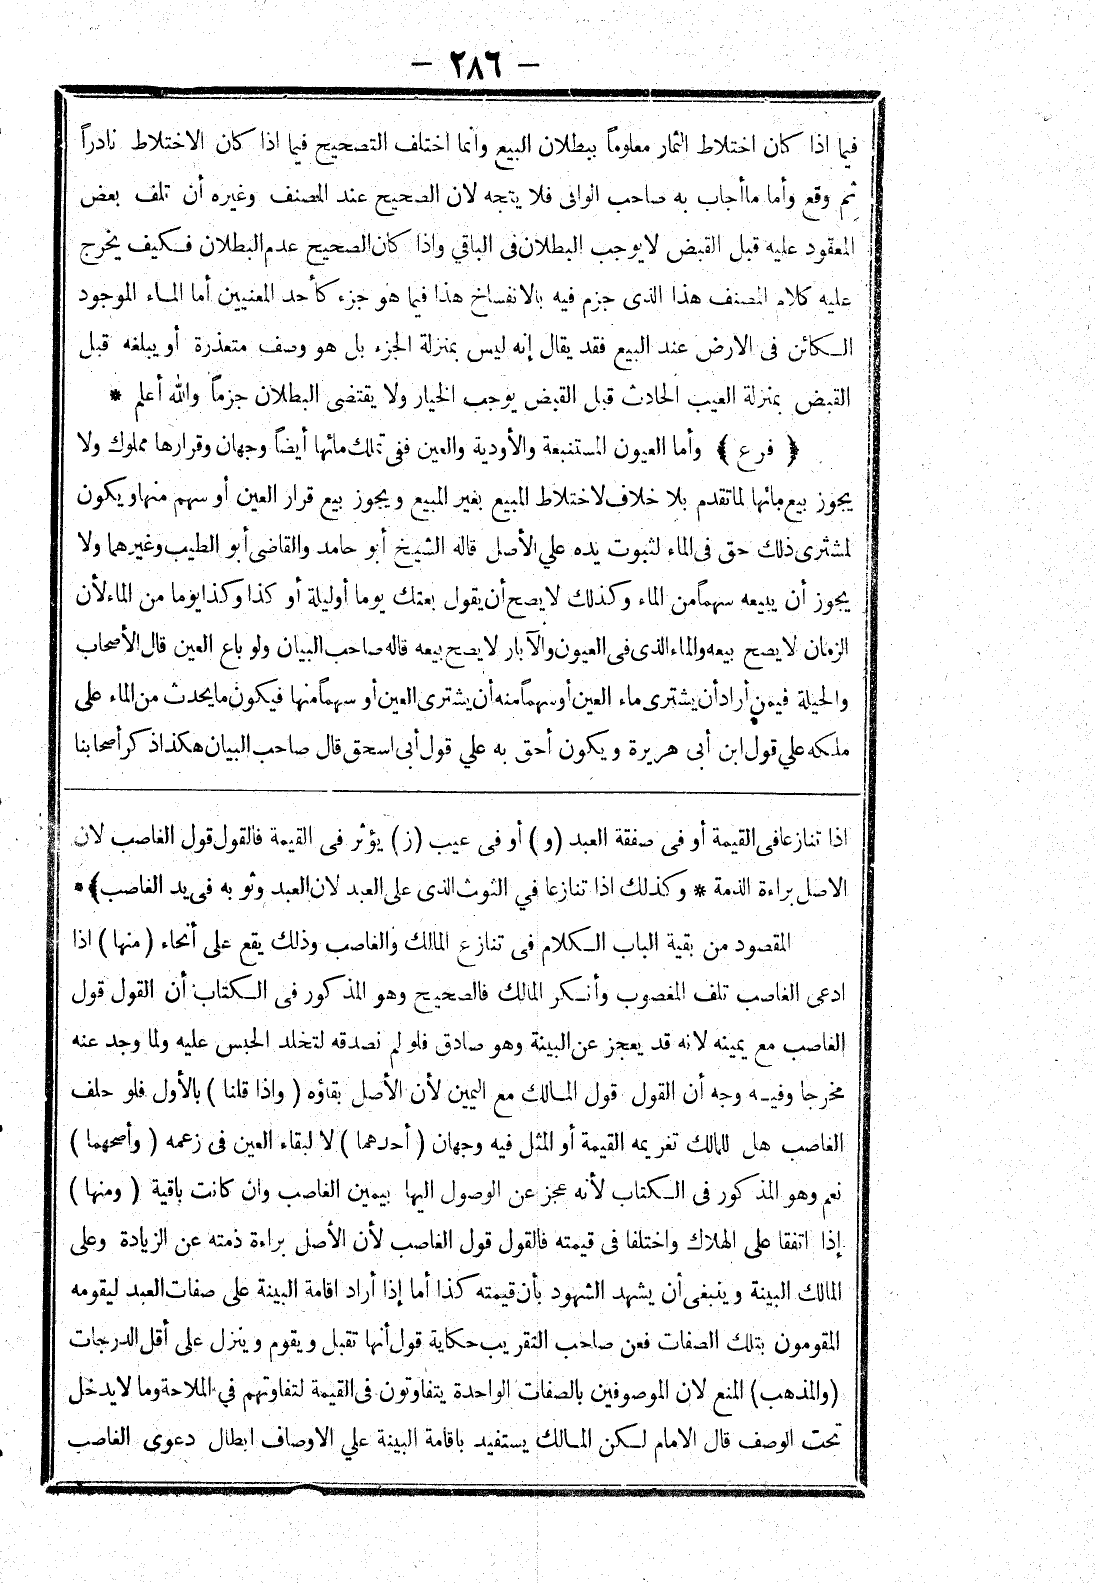 — ٢٨٦ —
فيما اذا كان اختلاط الثمار معلوماً ببطلان البيع وانما اختلف التصحيح فيما اذا كان الاختلاط نادراً
ثم وقع وأما ماأجاب به صاحب الوافى فلا يتجه لان الصحيح عند المصنف وغيره أن تلف بعض
المعقود عليه قبل القبض لايوجب البطلان فى الباقي واذا كان الصحيح عدم البطلان فكيف يخرج
عليه كلام المصنف هذا الذى جزم فيه بالانفساخ هذا فيما هو جزء كأحد المعنيين أما الماء الموجود
الكائن فى الارض عند البيع فقد يقال إنه ليس بمنزلة الجزء بل هو وصف متعذرة أو يبلغه قبل
القبض بمنزلة العيب الحادث قبل القبض يوجب الخيار ولا يقتضى البطلان جزماً والله أعلم *
﴿ فرع ﴾ وأما العيون المستنبعة والأودية والعين ففى تملك مائها أيضاً وجهان وقرارها مملوك ولا
يجوز بيع مائها لماتقدم بلا خلاف لاختلاط المبيع بغير المبيع ويجوز بيع قرار العين أو سهم منها ويكون
لمشترى ذلك حق فى الماء لثبوت يده علي الأصل قاله الشيخ أبو حامد والقاضى أبو الطيب وغيرهما ولا
يجوز أن يبيعه سهماً من الماء وكذلك لايصح أن يقول بعتك يوما أوليلة أو كذا وكذا يوما من الماء لأن
الزمان لايصح بيعه والماء الذى فى العيون والآبار لايصح بيعه قاله صاحب البيان ولو باع العين قال الأصحاب
والحيلة فيمن أراد أن يشترى ماء العين أوسهماً منه أن يشترى العين أو سهماً منها فيكون مايحدث من الماء على
ملكه علي قول ابن أبى هريرة ويكون أحق به علي قول أبى اسحق قال صاحب البيان هكذا ذكر أصحابنا
اذا تنازعا فى القيمة أو فى صفقة العبد (و) أو فى عيب (ز) يؤثر فى القيمة فالقول قول الغاصب لان
الاصل براءة الذمة * وكذلك اذا تنازعا في الثوب الذى على العبد لان العبد وثوبه فى يد الغاصب ﴾ *
المقصود من بقية الباب الكلام فى تنازع المالك والغاصب وذلك يقع على أنحاء ( منها ) اذا
ادعى الغاصب تلف المغصوب وأنكر المالك فالصحيح وهو المذكور فى الكتاب أن القول قول
الغاصب مع يمينه لانه قد يعجز عن البينة وهو صادق فلو لم نصدقه لتخلد الحبس عليه ولما وجد عنه
مخرجا وفيه وجه أن القول قول المالك مع اليمين لأن الأصل بقاؤه ( واذا قلنا ) بالأول فلو حلف
الغاصب هل للمالك تغريمه القيمة أو المثل فيه وجهان ( أحدهما ) لا لبقاء العين فى زعمه ( وأصحهما )
نعم وهو المذكور فى الكتاب لأنه عجز عن الوصول اليها بيمين الغاصب وان كانت باقية ( ومنها )
إذا اتفقا على الهلاك واختلفا فى قيمته فالقول قول الغاصب لأن الأصل براءة ذمته عن الزيادة وعلى
المالك البينة وينبغى أن يشهد الشهود بأن قيمته كذا أما إذا أراد اقامة البينة على صفات العبد ليقومه
المقومون بتلك الصفات فعن صاحب التقريب حكاية قول أنها تقبل ويقوم وينزل على أقل الدرجات
(والمذهب) المنع لان الموصوفين بالصفات الواحدة يتفاوتون فى القيمة لتفاوتهم في الملاحة وما لايدخل
تحت الوصف قال الامام لكن المالك يستفيد باقامة البينة علي الاوصاف ابطال دعوى الغاصب